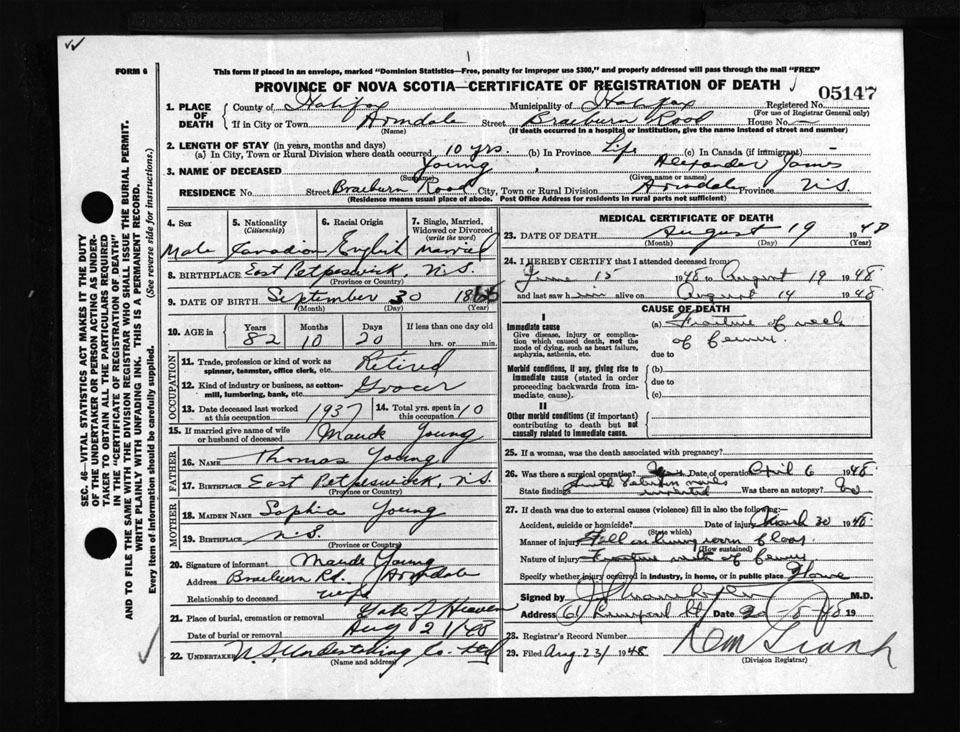 FORM 6
This form if placed in an envelope, marked "Dominion Statistics—Free, penalty for improper use $300," and properly addressed will pass through the mail "FREE"
PROVINCE OF NOVA SCOTIA—CERTIFICATE OF REGISTRATION OF DEATH
05147
1. PLACE OF DEATH County of Halifax Municipality of Halifax Registered No.
(For use of Registrar General only)
If in City or Town Armdale Street Braeburn Road House No. —
(Name) (If death occurred in a hospital or institution, give the name instead of street and number)
2. LENGTH OF STAY (in years, months and days)
(a) In City, Town or Rural Division where death occurred 10 yrs. (b) In Province Life (c) In Canada (if immigrant)
3. NAME OF DECEASED Young Alexander James
(Surname) (Given name or names)
RESIDENCE No. Street Braeburn Road City, Town or Rural Division Armdale Province N.S.
(Residence means usual place of abode. Post Office Address for residents in rural parts not sufficient)
SEC. 46—VITAL STATISTICS ACT MAKES IT THE DUTY
OF THE UNDERTAKER OR PERSON ACTING AS UNDER-
TAKER TO OBTAIN ALL THE PARTICULARS REQUIRED
IN THE "CERTIFICATE OF REGISTRATION OF DEATH"
AND TO FILE THE SAME WITH THE DIVISION REGISTRAR WHO SHALL ISSUE THE BURIAL PERMIT.
WRITE PLAINLY WITH UNFADING INK. THIS IS A PERMANENT RECORD.
Every item of information should be carefully supplied. (See reverse side for instructions.)
4. Sex 5. Nationality (Citizenship) 6. Racial Origin 7. Single, Married, Widowed or Divorced (write the word)
Male Canadian English Married
8. BIRTHPLACE East Petpeswick, N.S.
(Province or Country)
9. DATE OF BIRTH September 30 1865
(Month) (Day) (Year)
10. AGE in Years Months Days If less than one day old
82 10 20 hrs. or min.
OCCUPATION
11. Trade, profession or kind of work as spinner, teamster, office clerk, etc. Retired
12. Kind of industry or business, as cotton-mill, lumbering, bank, etc. Grocer
13. Date deceased last worked at this occupation 1937 14. Total yrs. spent in this occupation 10
15. If married give name of wife or husband of deceased Maude Young
FATHER
16. NAME Thomas Young
17. BIRTHPLACE East Petpeswick, N.S.
(Province or Country)
MOTHER
18. MAIDEN NAME Sophia Young
19. BIRTHPLACE N.S.
(Province or Country)
20. Signature of informant Maude Young
Address Braeburn Rd. Armdale
Relationship to deceased wife
21. Place of burial, cremation or removal Gate of Heaven
Date of burial or removal Aug 21/48
22. UNDERTAKER N.S. Undertaking Co. Ltd
(Name and address)
MEDICAL CERTIFICATE OF DEATH
23. DATE OF DEATH August 19 1948
(Month) (Day) (Year)
24. I HEREBY CERTIFY that I attended deceased from:
June 15 1948 to August 19 1948
and last saw him alive on August 14 1948
CAUSE OF DEATH
I
Immediate cause
Give disease, injury or complication which caused death, not the mode of dying, such as heart failure, asphyxia, asthenia, etc.
(a) Fracture of neck of femur.
due to
Morbid conditions, if any, giving rise to immediate cause (stated in order proceeding backwards from immediate cause).
(b)
due to
(c)
II
Other morbid conditions (if important) contributing to death but not causally related to immediate cause.
25. If a woman, was the death associated with pregnancy?
26. Was there a surgical operation? Yes Date of operation April 6 1948
State findings Smith Petersen nails inserted Was there an autopsy? No
27. If death was due to external causes (violence) fill in also the following:—
Accident, suicide or homicide? Date of injury March 30 1948
(State which)
Manner of injury Fall on living room floor
(How sustained)
Nature of injury Fracture neck of femur
Specify whether injury occurred in industry, in home, or in public place Home
Signed by M.D.
Address 61 St. Date 20-8-48 19
28. Registrar's Record Number
29. Filed Aug. 23/ 1948
(Division Registrar)